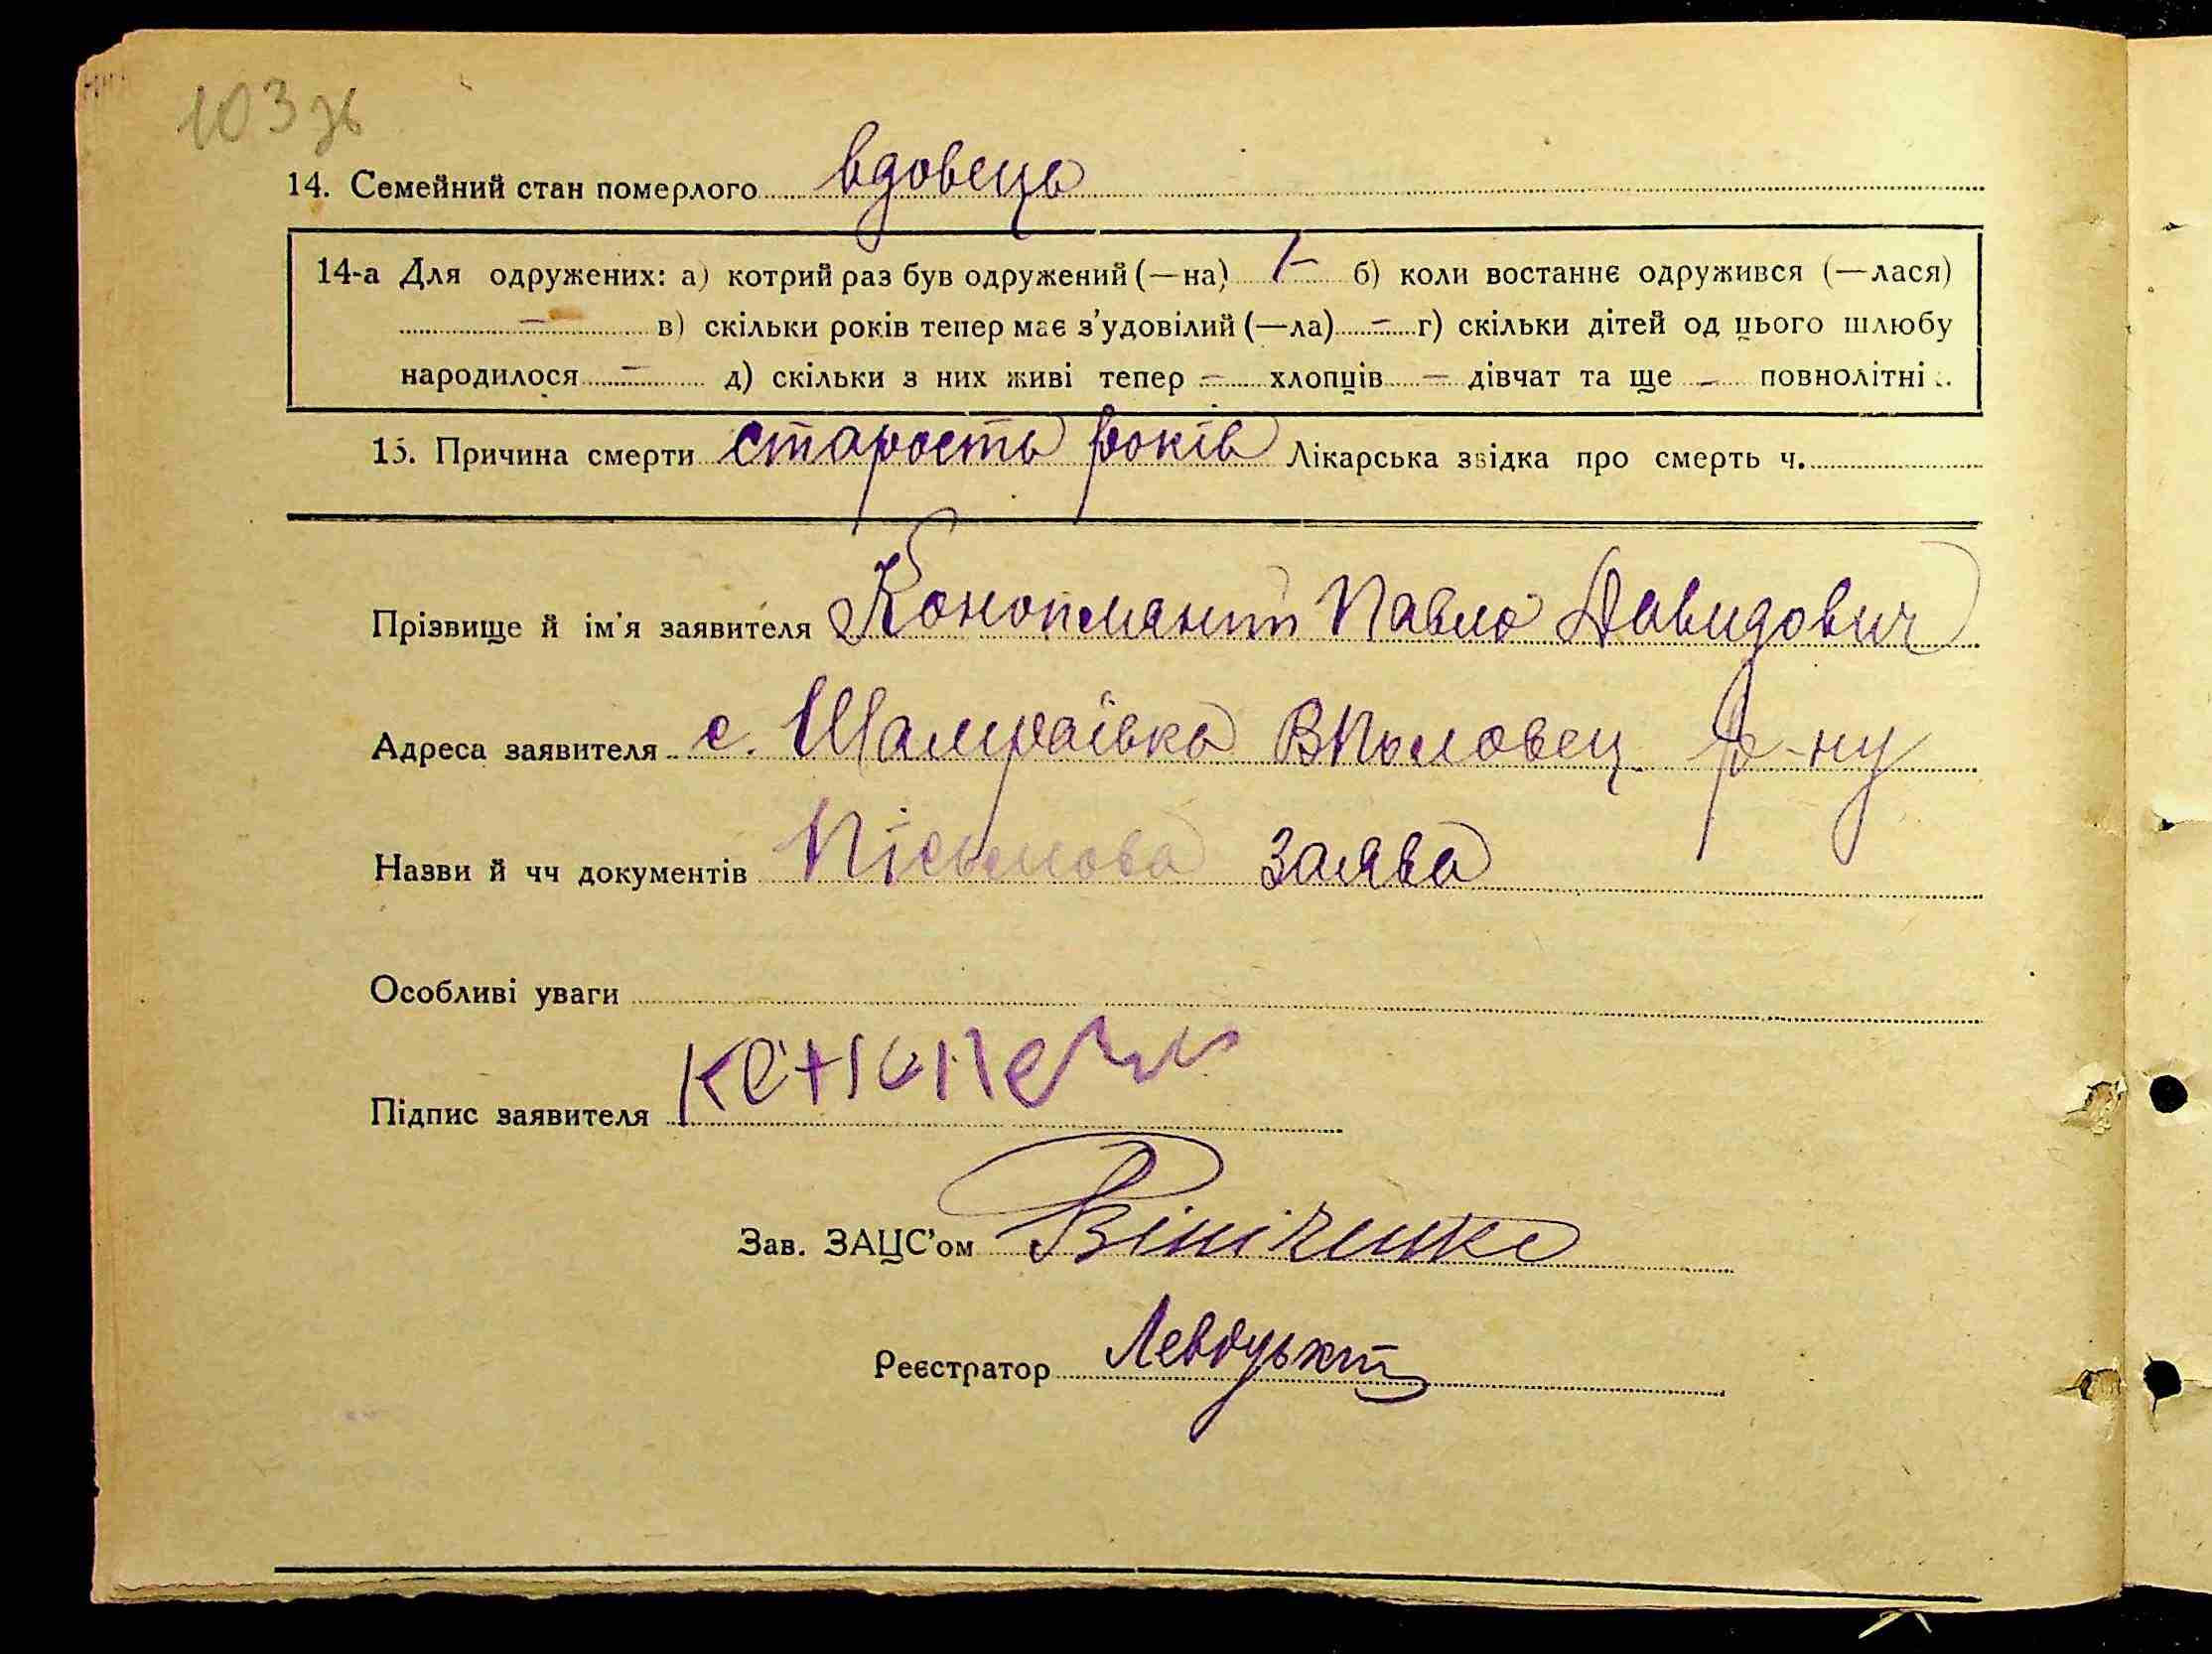 103 зв
14. Семейний стан померлого вдовець
14-а Для одружених: а) котрий раз був одружений (—на) 1 - б) коли востаннє одружився (—лася)
– в) скільки років тепер має з'удовілий (—ла) – г) скільки дітей од цього шлюбу
народилося – д) скільки з них живі тепер – хлопців – дівчат та ще – повнолітні .
15. Причина смерти старость років Лікарська звідка про смерть ч.
Прізвище й ім'я заявителя Павло Давидович
Адреса заявителя с. Шамраївка ВПоловец. р-ну
Назви й чч документів Пісьмова заява
Особливі уваги
Підпис заявителя
Зав. ЗАЦС'ом Вініченко
Реєстратор